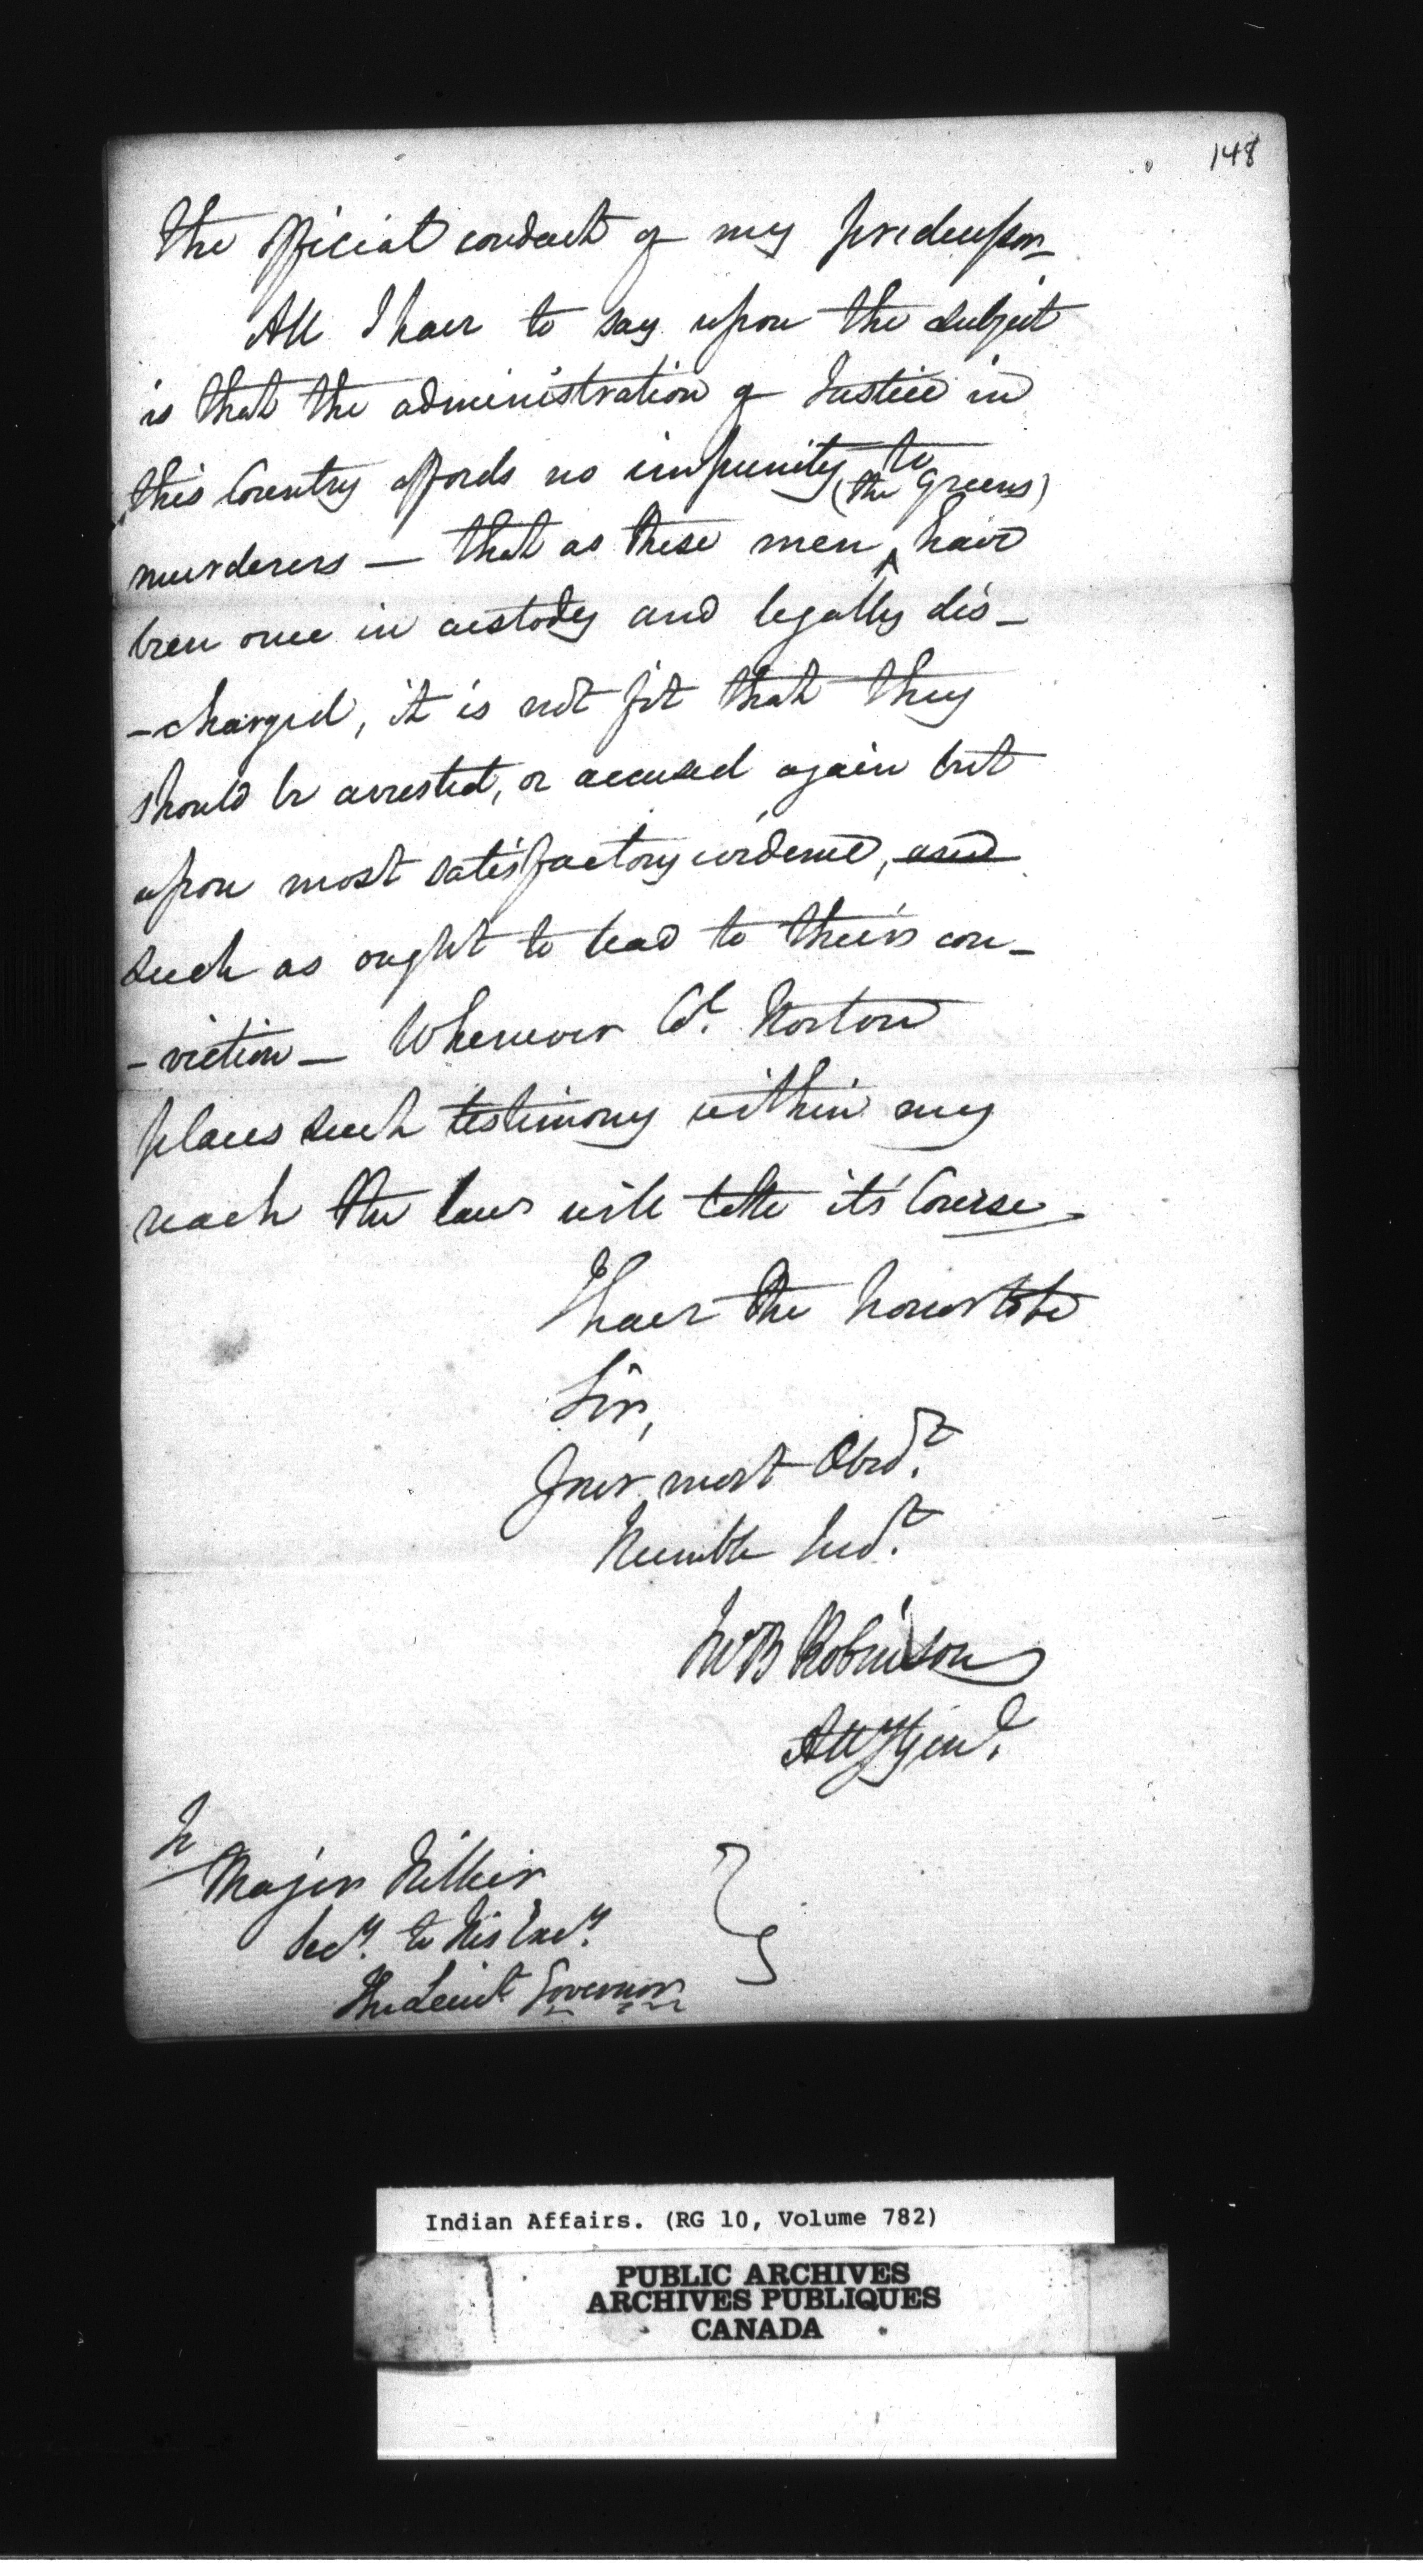 148
the official conduct of my predecessor_
All I have to say upon the subject
is that the administration of Justice in
this Country affords no impunity to
(the Greens)
murderers — that as these men ^ have
been once in custody and legally dis_
-charged, it is not fit that they
should be arrested, or accused again but
upon most satisfactory evidence, and
such as ought to lead to their con_
-viction — Whenever Col. Norton
places such testimony within my
reach the law will take its Course_
I have the honor to be
Sir,
Your most Obed.t
Humble Servt.
Jno B Robinson
Atty Genl.
To
Major Hillier
Secy. to His Excy.
The Lieut. Governor
Indian Affairs. (RG 10, Volume 782)
PUBLIC ARCHIVES
ARCHIVES PUBLIQUES
CANADA